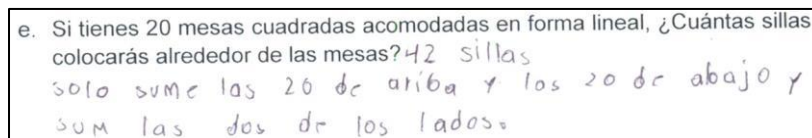 e. Si tienes 20 mesas cuadradas acomodadas en forma lineal, ¿Cuántas sillas
colocarás alrededor de las mesas? 42 sillas
solo sume las 20 de ariba y los 20 de abajo y
sum las dos de los lados.